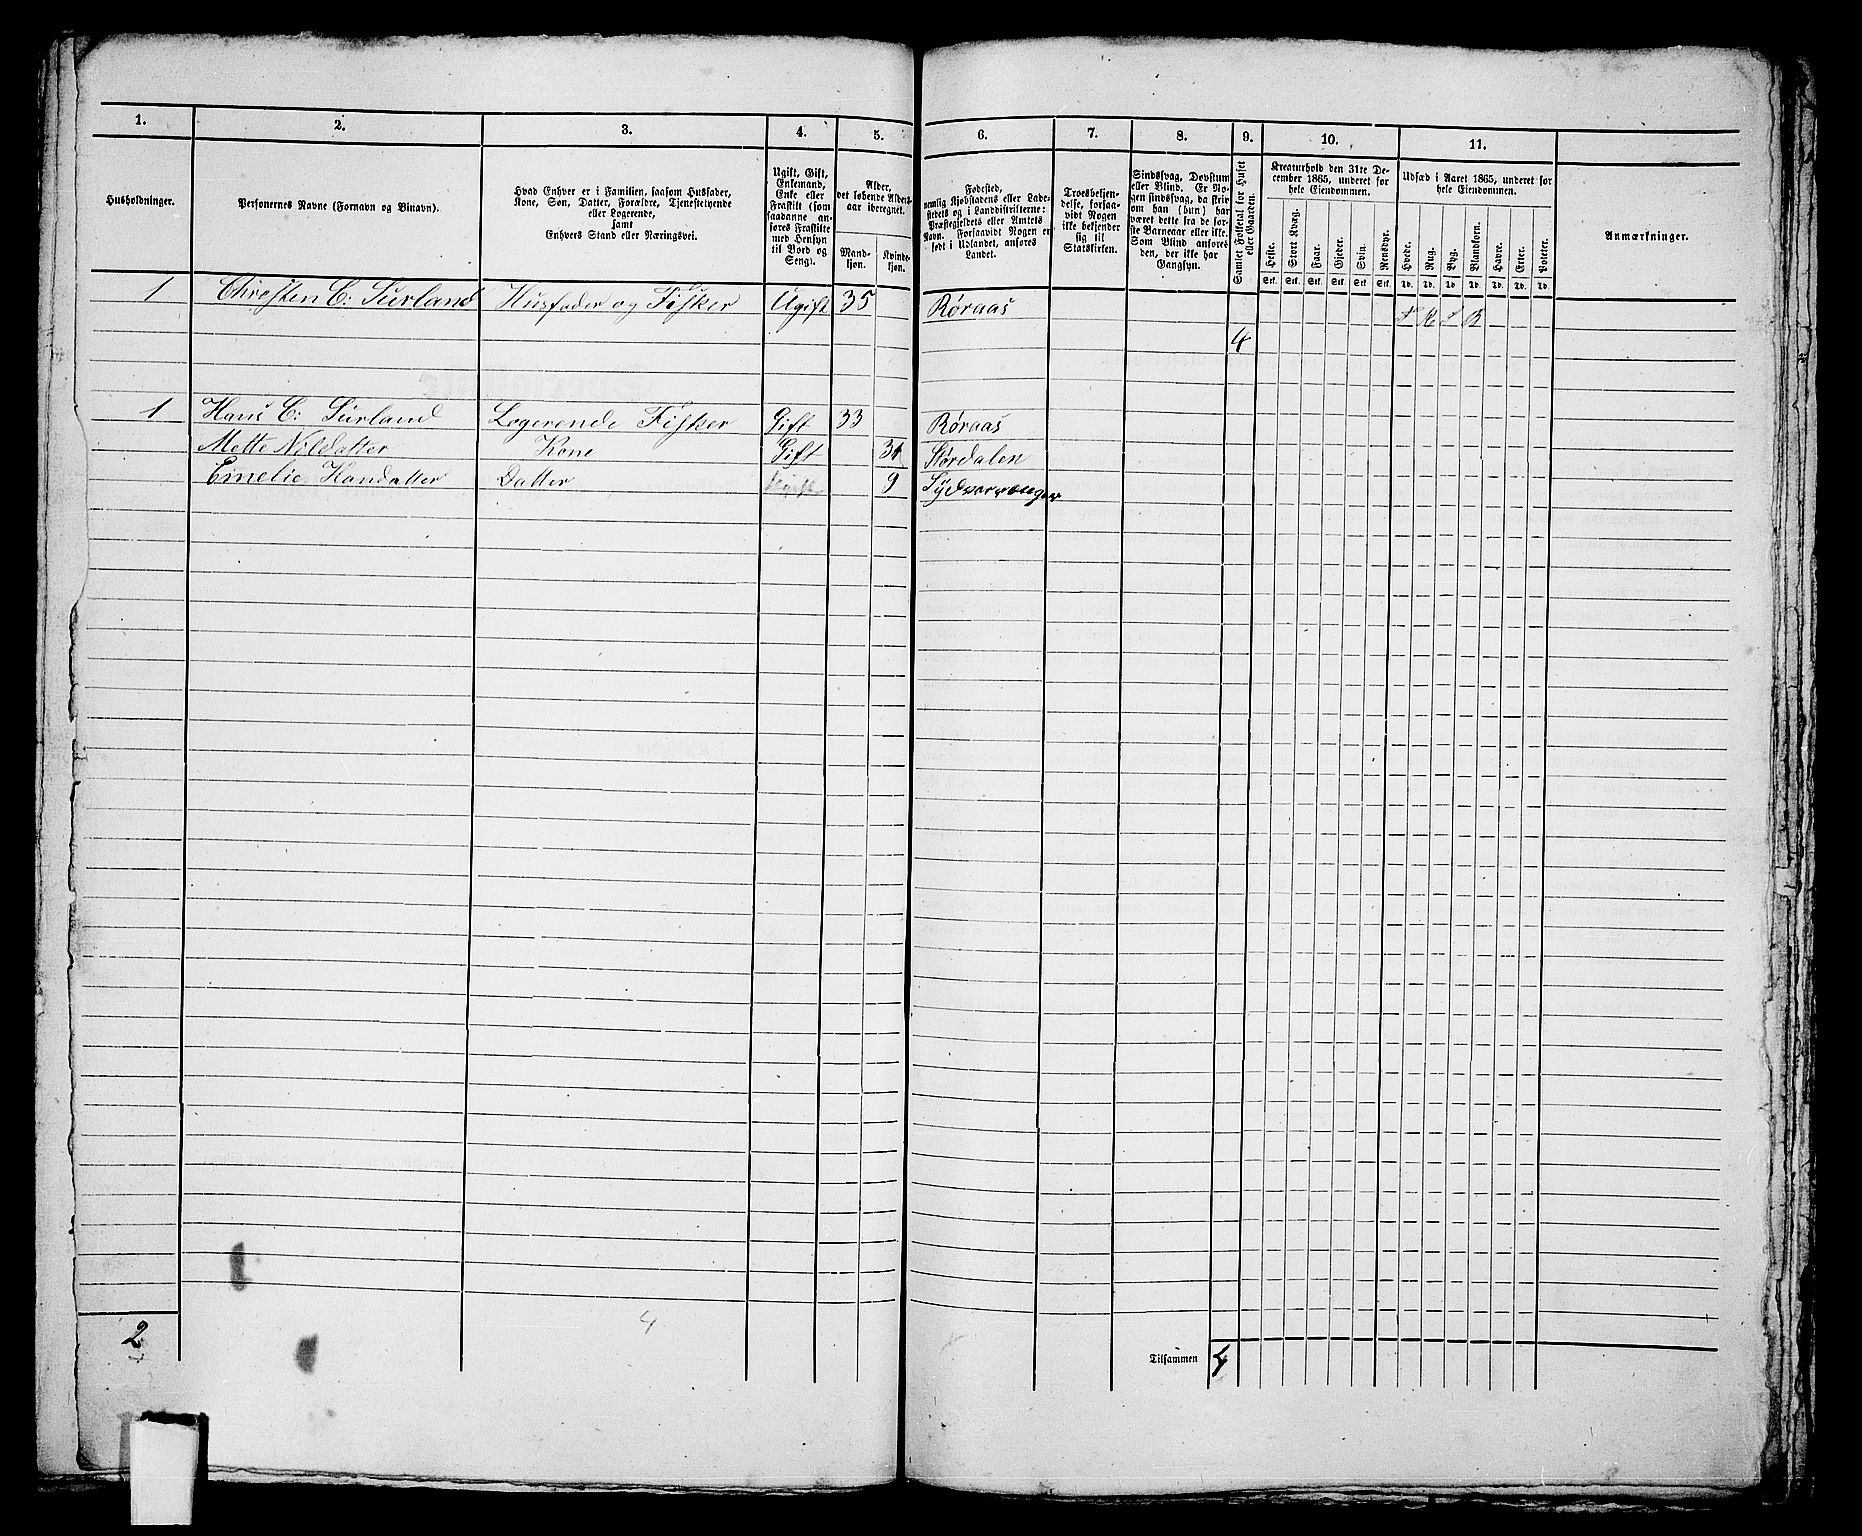 1. 2. 3. 4. 5. 6. 7. 8. 9. 10. 11.
Husholdninger.
Personernes Navne (Fornavn og Binavn).
Hvad Enhver er i Familien, saasom Husfader,
Kone, Søn, Datter, Forældre, Tjenestetyende
eller Logerende,
samt
Enhvers Stand eller Næringsvei.
Ugift, Gift,
Enkemand,
Enke eller
Fraskilt (som
saadanne an-
føres Fraskilte
med Hensyn
til Bord og
Seng).
Alder,
det løbende Alders-
aar iberegnet.
Mand-
kjøn.
Kvinde-
kjøn.
Fødested,
nemlig Kjøbstadens eller Lade-
stedets og i Landdistrikterne:
Præstegjeldets eller Amtets
Navn. Forsaavidt Nogen er
født i Udlandet, anføres
Landet.
Troesbekjen-
delse, forsaa-
vidt Nogen
ikke bekjender
sig til
Statskirken.
Sindssvag, Døvstum
eller Blind. Er No-
gen sindssvag, da skriv
om han (hun) har
været dette fra de før-
ste Barneaar eller ikke.
Som Blind anføres
den, der ikke har
Gangsyn.
Samlet Folketal for Huset
eller Gaarden.
Kreaturhold den 31te De-
cember 1865, underet for
hele Eiendommen.
Heste.
Stort Kvæg.
Faar.
Gjeder.
Svin.
Rensdyr.
Stk. Stk. Stk. Stk. Stk. Stk.
Udsæd i Aaret 1865, underet for
hele Eiendommen.
Hvede.
Rug.
Byg.
Blandkorn.
Havre.
Erter.
Poteter.
Td. Td. Td. Td. Td. Td. Td.
Anmærkninger.
1 Christen C: Surland Husfader og Fisker Ugift 35 Røraas
4
1 Hans C: Surland Logerende Fisker Gift 33 Røraas
Mette Nilsdatter Kone Gift 31 Størdalen
Emelie Hansdatter Datter Ugift 9 Sydvarranger
2 4
Tilsammen 4